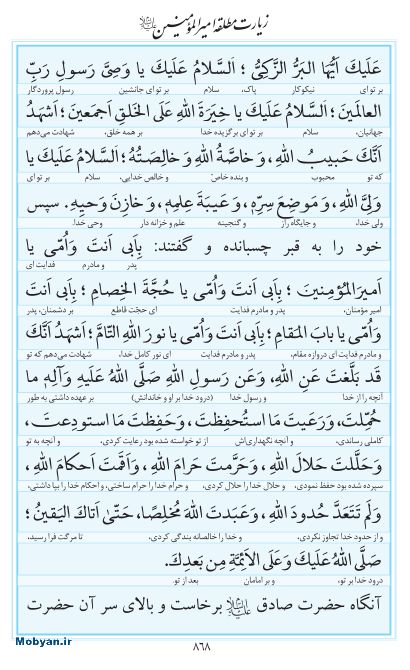 زیارت مطلقه امیرالمؤمنین علیه‌السلام
عَلَیكَ اَیُّهَا البَرُّ الزَّكِیُّ ؛ اَلسَّلامُ عَلَیكَ یا وَصِیَّ رَسولِ رَبِّ
بر تو ای نیکوکار پاک، سلام بر تو ای جانشین رسول پروردگار
العالَمینَ؛ اَلسَّلامُ عَلَیكَ یا خِیَرَةَ اللهِ عَلَی الخَلقِ اَجمَعینَ؛ اَشهَدُ
جهانیان، سلام بر تو ای برگزیده خدا بر همه خلق، شهادت می‌دهم
اَنَّكَ حَبیبُ اللهِ، وَ خاصَّةُ اللهِ وَ خالِصَتُهُ؛ اَلسَّلامُ عَلَیكَ یا
که تو محبوب و بنده خاصّ و خالص خدایی، سلام بر تو ای
وَلِیَّ اللهِ، وَ مَوضِعَ سِرِّهِ، وَ عَیبَةَ عِلمِهِ، وَ خازِنَ وَحیِهِ. سپس
ولی خدا، و جایگاه راز و گنجینه علم و خزانه دار وحی خدا.
خود را به قبر چسبانده و گفتند: بِاَبی اَنتَ وَ اُمّی یا
پدر و مادرم فدایت ای
اَمیرَالمُؤمِنینَ ؛ بِاَبی اَنتَ وَ اُمّی یا حُجَّةَ الخِصامِ ؛ بِاَبی اَنتَ
امیر مؤمنان، پدر و مادرم فدایت ای حجّت قاطع بر دشمنان، پدر
وَ اُمّی یا بابَ المَقامِ؛ بِاَبی اَنتَ وَ اُمّی یا نورَ اللهِ التّامَّ؛ اَشهَدُ اَنَّكَ
و مادرم فدایت ای دروازه مقام، پدر و مادرم فدایت ای نور کامل خدا، شهادت می‌دهم که تو
قَد بَلَّغتَ عَنِ اللهِ، وَ عَن رَسولِ اللهِ صَلَّی اللهُ عَلَیهِ وَ آلِهِ ما
آنچه را از خدا و رسول خدا (درود خدا بر او و خاندانش) بر عهده داشتی به طور
حُمِّلتَ، وَ رَعَیتَ مَا استُحفِظتَ، وَ حَفِظتَ مَا استودِعتَ،
کاملی رساندی، و آنچه نگهداری‌اش از تو خواسته شده بود رعایت کردی، و آنچه به تو
وَ حَلَّلتَ حَلالَ اللهِ، وَ حَرَّمتَ حَرامَ اللهِ، وَ اَقَمتَ اَحکامَ اللهِ،
سپرده شده بود حفظ نمودی، و حلال خدا را حلال کردی، و حرام خدا را حرام ساختی، و احکام خدا را بپا داشتی،
وَ لَم تَتَعَدَّ حُدودَ اللهِ، وَ عَبَدتَ اللهَ مُخلِصًا، حَتّیٰ اَتاكَ الیَقینُ؛
و از حدود خدا تجاوز نکردی، و خدا را خالصانه بندگی کردی، تا مرگت فرا رسید،
صَلَّی اللهُ عَلَیكَ وَ عَلَی الاَئِمَّةِ مِن بَعدِكَ.
درود خدا بر تو، و بر امامان بعد از تو.
آنگاه حضرت صادق علیه‌السلام برخاست و بالای سر آن حضرت
Mobyan.ir
۸۶۸